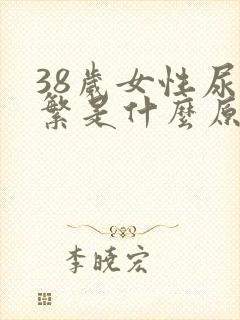 38歲女性尿
繁是什麼原
李曉宏